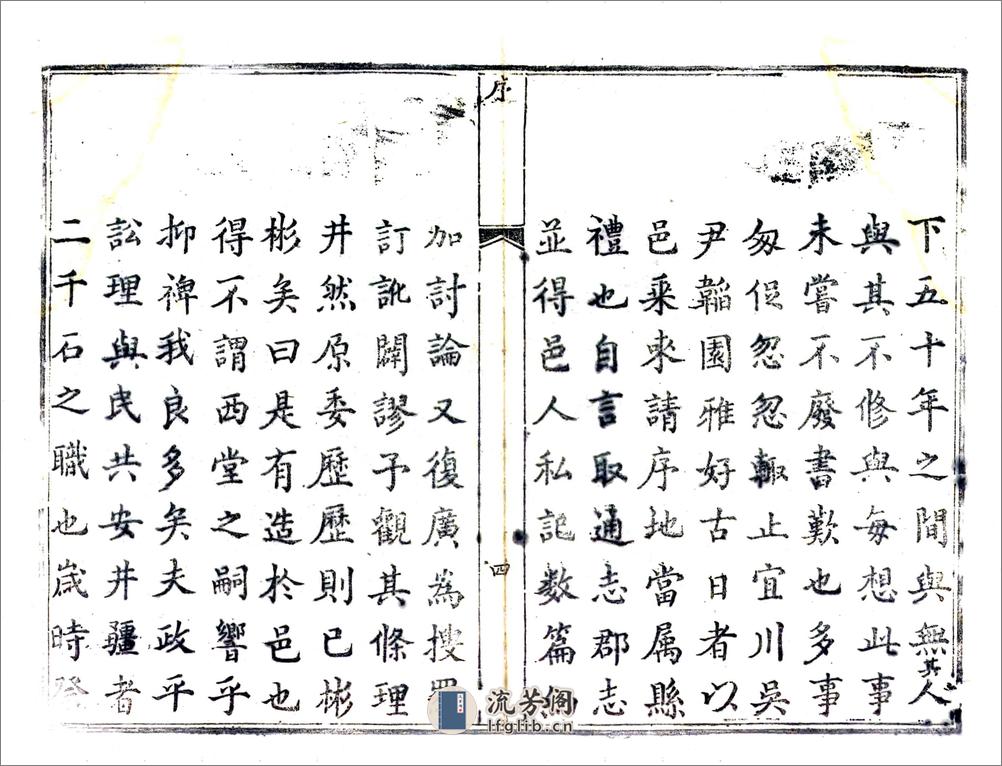 下五十年之間與無其人
與其不修與每想此事
未嘗不廢書歎也多事
匆促忽忽輙止宜川吳
尹韜園雅好古日者以
邑乘來請序地當属縣
禮也自言取通志郡志
並得邑人私記数篇
序
四
加討論又復廣為搜
訂訛闢謬予觀其條理
井然原委歷歷則已彬
彬矣曰是有造於邑也
得不謂西堂之嗣響乎
抑裨我良多矣夫政平
訟理與民共安井疆者
二千石之職也歲時
流芳阁
lfglib.cn